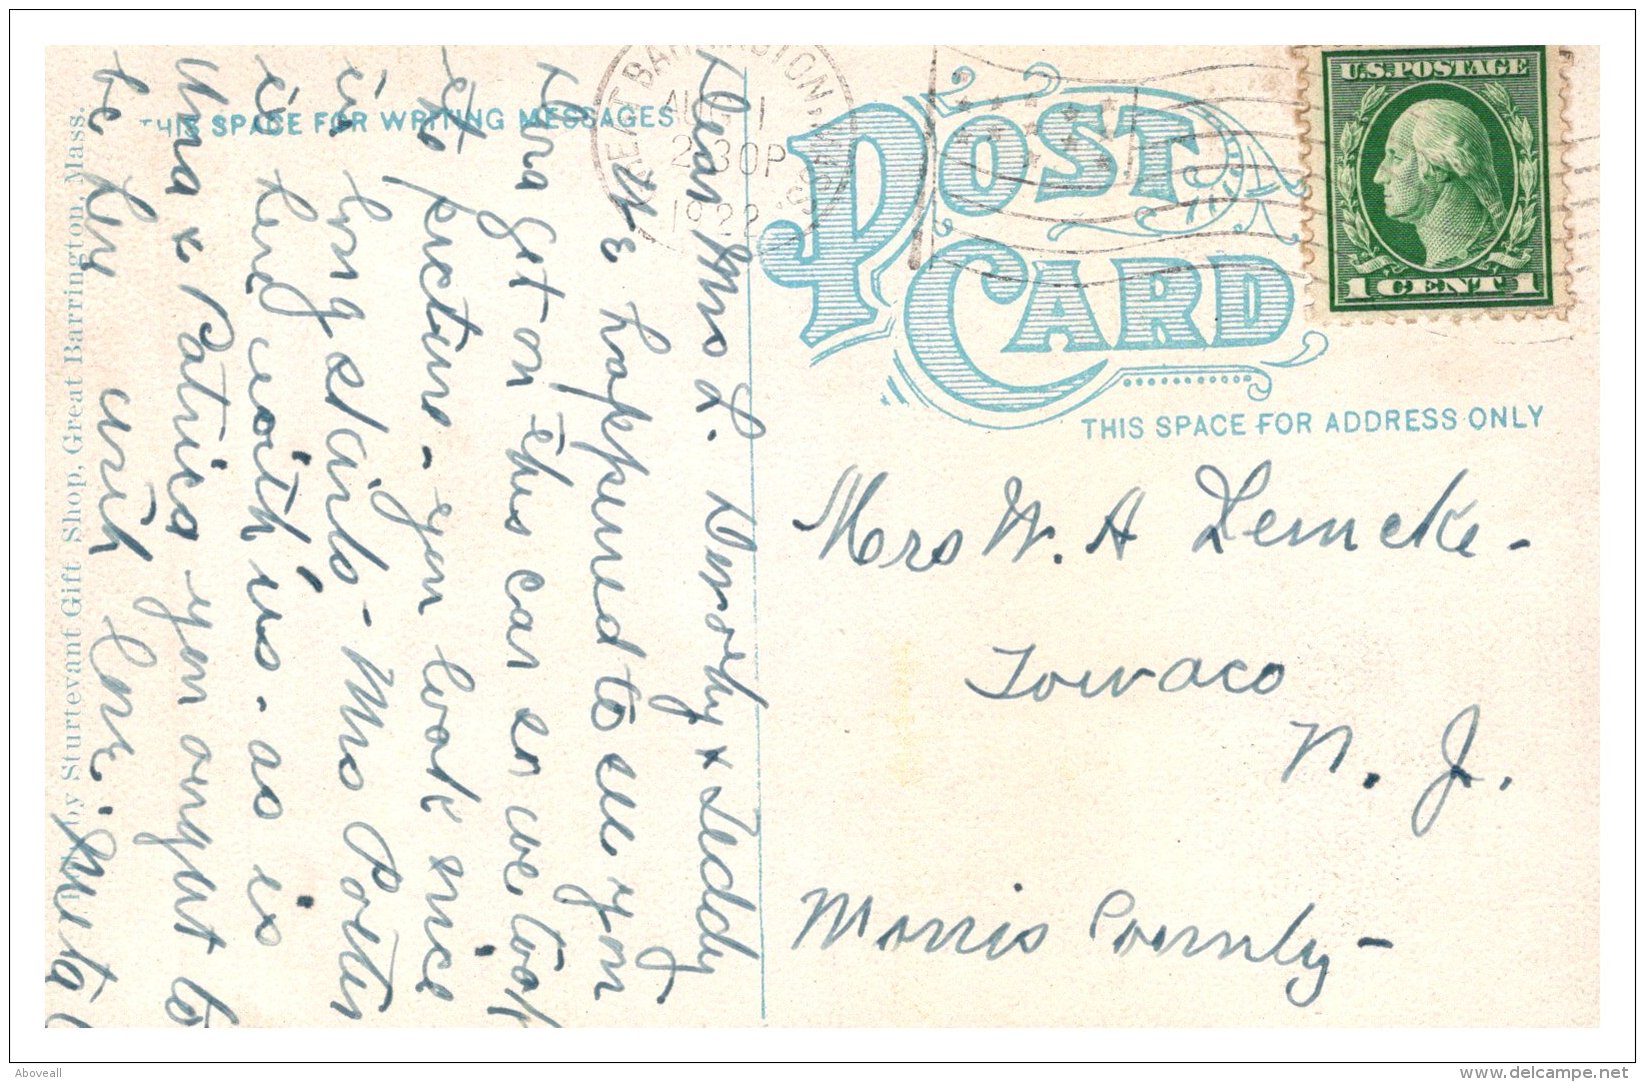 THIS SPACE FOR WRITING MESSAGES
GREAT BARRINGTON, MASS.
AUG 1
2 30 P
1922
POST
CARD
U.S. POSTAGE
1 CENT 1
THIS SPACE FOR ADDRESS ONLY
Mrs W. A Lemcke -
Towaco
N. J.
Morris County -
Dear Mrs L. Dorothy & Teddy
We happened to see you &
get on this car so we took
picture - you look since
long stairs - Mrs Porter
is here with us. as is
& Patricia you ought to
be here with
by Sturtevant Gift Shop, Great Barrington, Mass.
Aboveall
delcampe.net